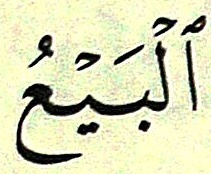 ٱلْبَيْعُ